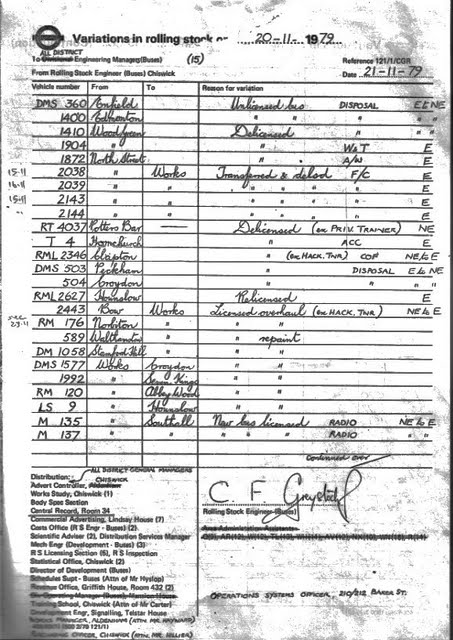 Variations in rolling stock on 20-11-1979
ALL DISTRICT
To Divisional Engineering Managers(Buses) (15) Reference 121/1/CGR
From Rolling Stock Engineer (Buses) Chiswick Date 21-11-79
Vehicle number From To Reason for variation
DMS 360 Enfield Unlicensed bus DISPOSAL E to NE
1400 Edmonton " " " "
1410 Wood Green Delicensed " "
1904 " " W&T E
1872 North Street " A/W E
15-11 2038 " Works Transferred & delsd F/C E
16-11 2039 " " " " " " E
15-11 2143 " " " " " " E
2144 " " " " " " E
RT 4037 Potters Bar — Delicensed (ex PRIV. TRAINER) NE
T 4 Hornchurch " ACC E
RML 2346 Clapton " (ex HACK. TNR) COF NE to E
DMS 503 Peckham " DISPOSAL E to NE
504 Croydon " " " "
RML 2627 Hounslow Relicensed E
2443 Bow Works Licensed overhaul (ex HACK. TNR) NE to E
RM 176 Norbiton " " "
589 Walthamstow " " repaint
DM 1058 Stamford Hill " " "
DMS 1577 Works Croydon " "
1992 " Seven Kings " "
RM 120 " Abbey Wood " "
LS 9 " Hounslow " "
M 135 " Southall New bus licensed RADIO NE to E
M 137 " " " " " RADIO " "
Continued over
Distribution: ALL DISTRICT GENERAL MANAGERS
CHISWICK
Advert Controller, Aldenham
Works Study, Chiswick (1)
Body Spec Section
Central Record, Room 34
Commercial Advertising, Lindsay House (7)
Costs Office (R S Engr - Buses) (2)
Scientific Adviser (2), Distribution Services Manager
Mech Engr (Development - Buses) (3)
R S Licensing Section (5), R S Inspection
Statistical Office, Chiswick (2)
Director of Development (Buses)
Schedules Supt - Buses (Attn of Mr Hyslop)
Revenue Office, Griffith House, Room 432 (2)
Training School, Chiswick (Attn of Mr Carter)
Development Engr, Signalling, Telstar House
WORKS MANAGER, ALDENHAM (ATTN. MR HAYWARD)
Rolling Stock Engineer (Buses)
Area Administration Assistants
OPERATIONS SYSTEMS OFFICER, 210/212 BAKER ST.